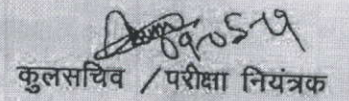 कुलसचिव / परीक्षा नियंत्रक